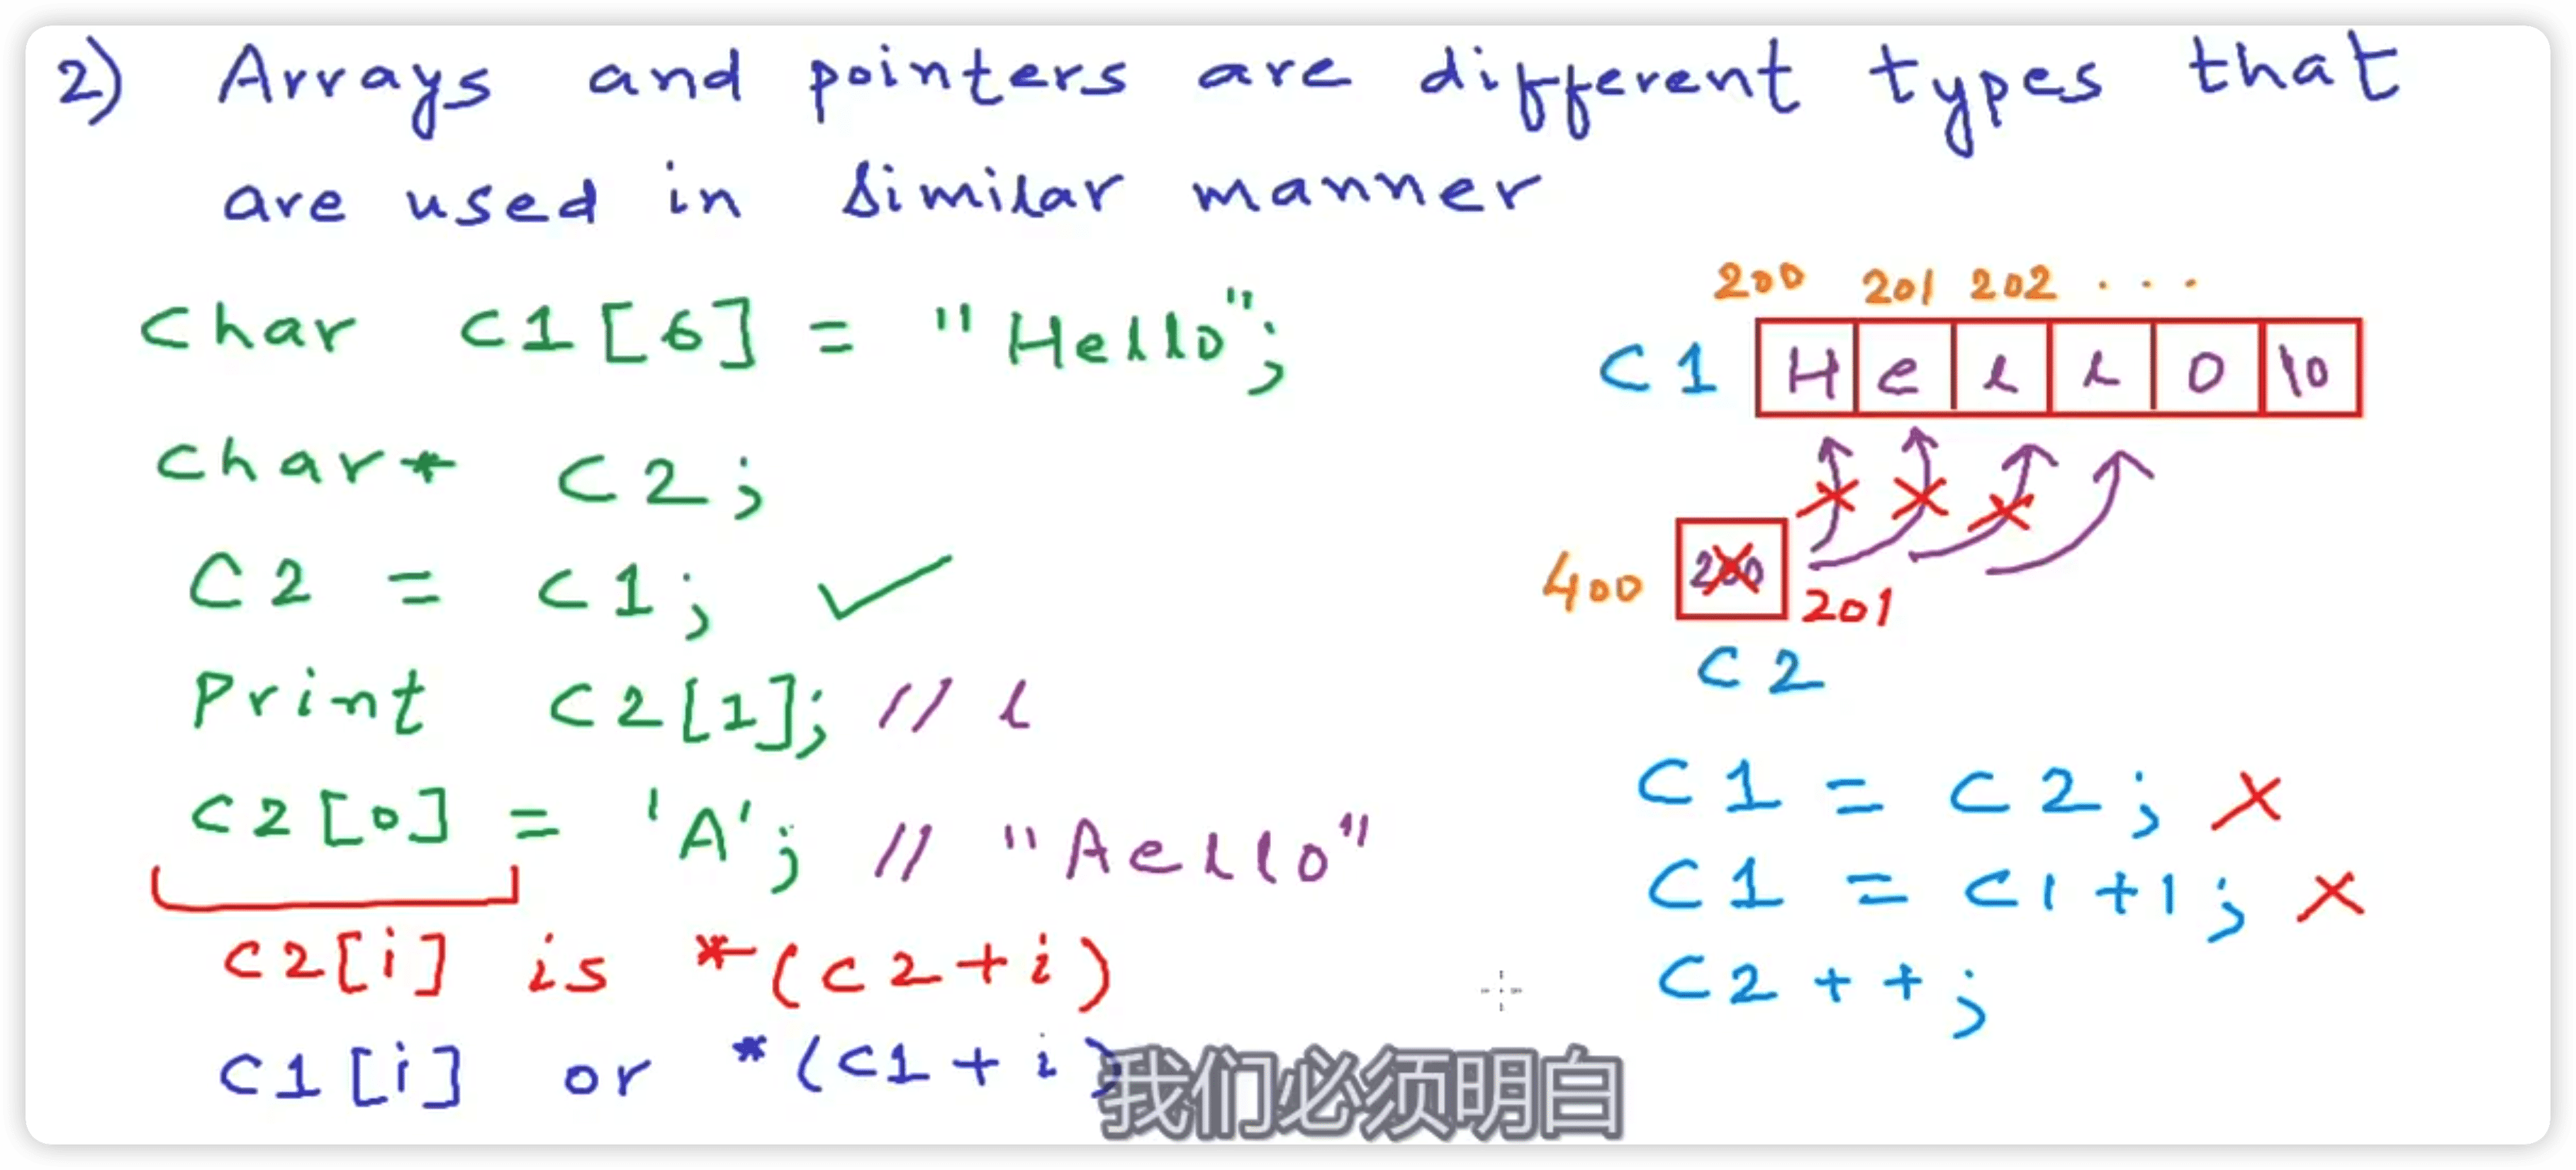 2) Arrays and pointers are different types that
are used in similar manner
Char C1[6] = "Hello";
Char* C2;
C2 = C1; ✓
Print C2[1]; // l
C2[0] = 'A'; // "Aello"
C2[i] is *(C2+i)
C1[i] or *(C1+i)
200 201 202 . . .
C1 H e l l o \0
400 200 201
C2
C1 = C2; X
C1 = C1+1; X
C2++;
我们必须明白